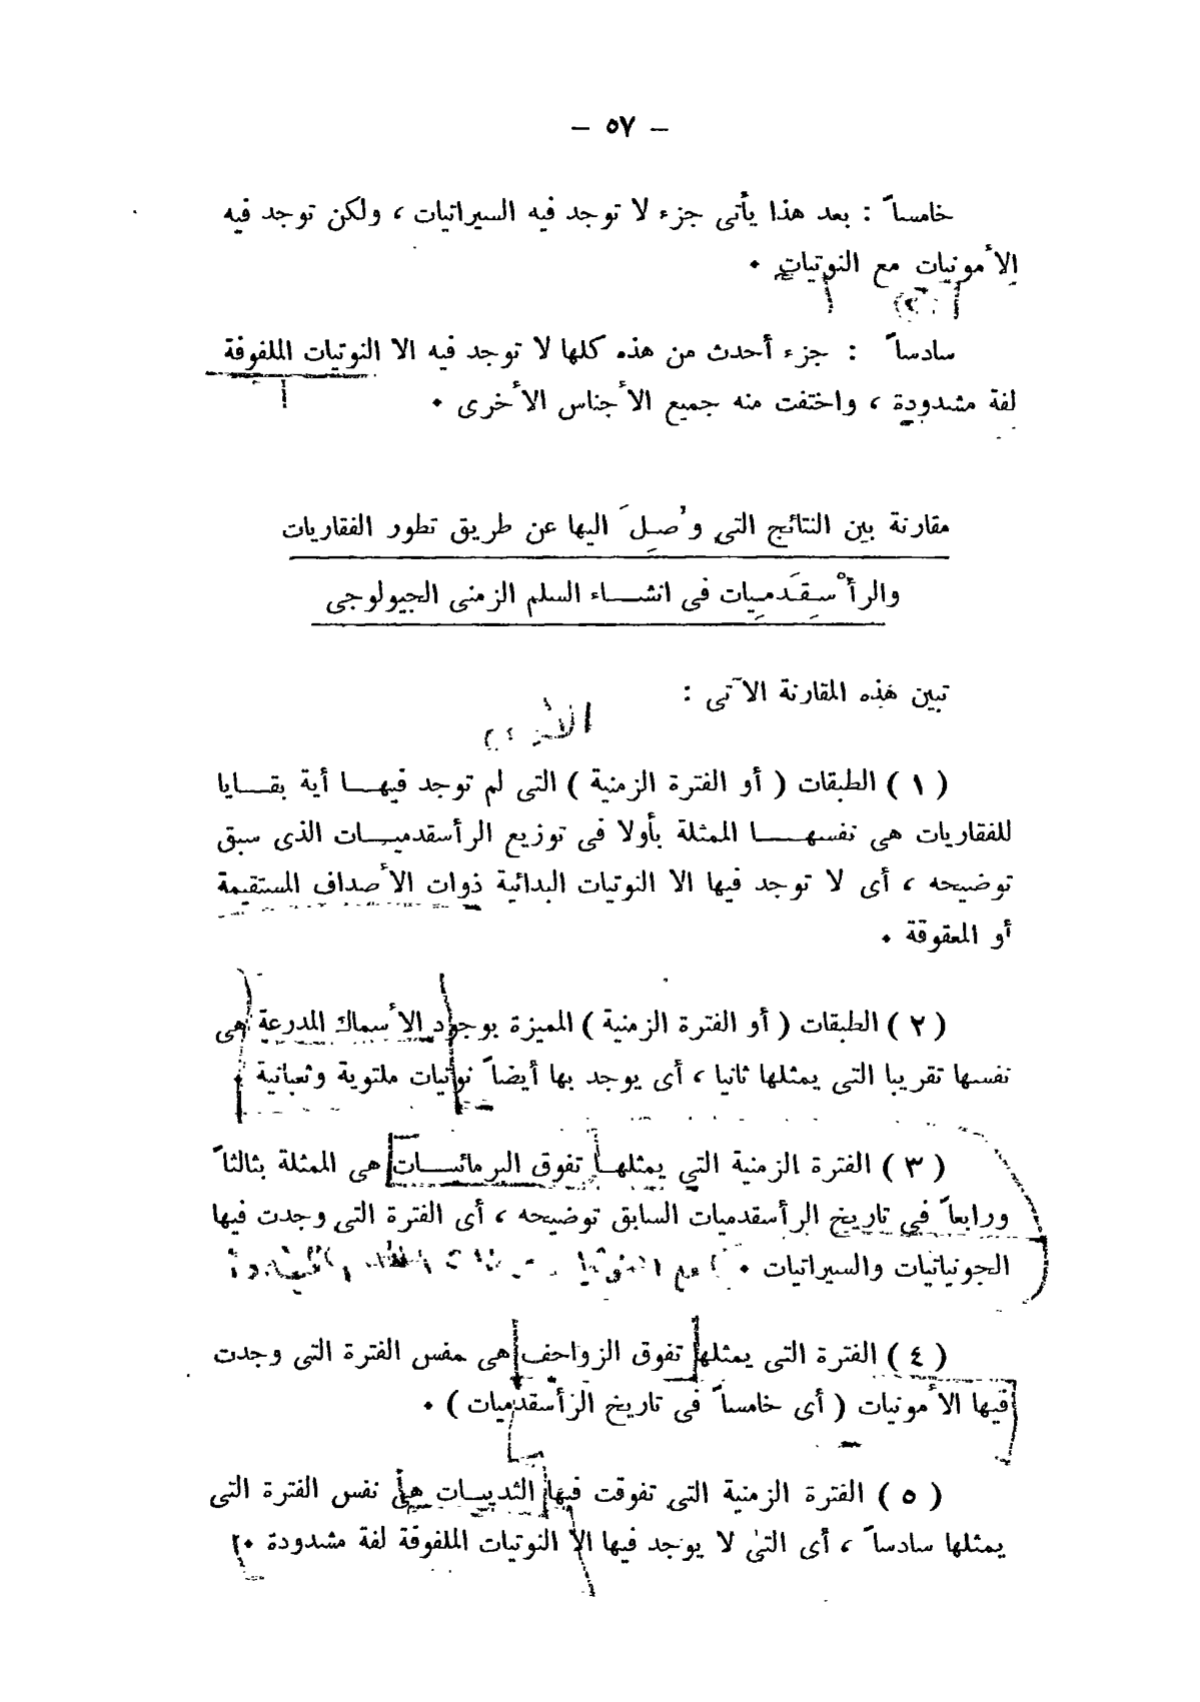 – ٥٧ –
خامساً : بعد هذا يأتى جزء لا توجد فيه السيراتيات ، ولكن توجد فيه
الأمونيات مع النوتيات .
سادساً : جزء أحدث من هذه كلها لا توجد فيه الا النوتيات الملفوفة
لفة مشدودة ، واختفت منه جميع الأجناس الأخرى .
مقارنة بين النتائج التى وُصِلَ اليها عن طريق تطور الفقاريات
والرأْسِقَدمِيات فى انشـــاء السلم الزمنى الجيولوجى
تبين هذه المقارنة الآتى :
( ١ ) الطبقات ( أو الفترة الزمنية ) التى لم توجد فيهــا أية بقــايا
للفقاريات هى نفسهـــا الممثلة بأولا فى توزيع الرأسقدميــات الذى سبق
توضيحه ، أى لا توجد فيها الا النوتيات البدائية ذوات الأصداف المستقيمة
أو المعقوقة .
( ٢ ) الطبقات ( أو الفترة الزمنية ) المميزة بوجود الأسماك المدرعة هى
نفسها تقريبا التى يمثلها ثانيا ، أى يوجد بها أيضاً نوتيات ملتوية وثعبانية .
( ٣ ) الفترة الزمنية التى يمثلهــا تفوق البرمائســات هى الممثلة بثالثاً
ورابعاً فى تاريخ الرأسقدميات السابق توضيحه ، أى الفترة التى وجدت فيها
الجونياتيات والسيراتيات .
( ٤ ) الفترة التى يمثلها تفوق الزواحف هى مفس الفترة التى وجدت
فيها الأمونيات ( أى خامساً فى تاريخ الرأسقدميات ) .
( ٥ ) الفترة الزمنية التى تفوقت فيها الثدييــات هى نفس الفترة التى
يمثلها سادساً ، أى التى لا يوجد فيها الا النوتيات الملفوفة لفة مشدودة .